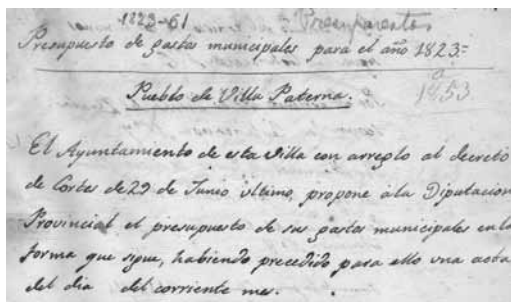 1823-61 Presupuestos
Presupuesto de gastos municipales para el año 1823=
a
1853
Pueblo de Villa Paterna.
El Ayuntamiento de esta Villa con arreglo al decreto
de Cortes de 29 de Junio ultimo, propone á la Diputacion
Provincial el presupuesto de sus gastos municipales en la
forma que sigue, habiendo precedido para ello una acta
del dia del corriente mes.